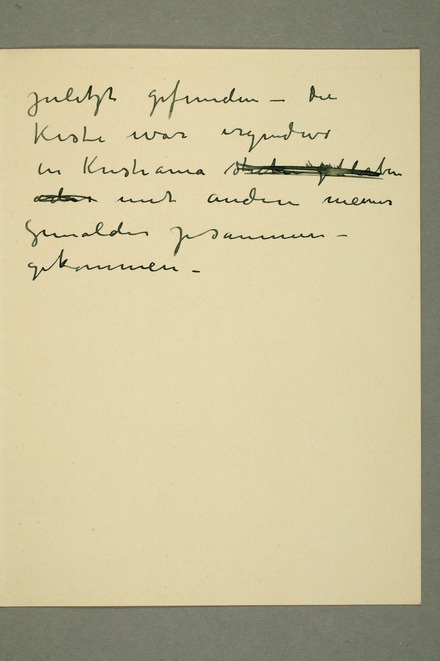 zuletzt gefunden – Die
Kiste war irgendwo
in Kristiania stehen geblieben
oder mit andern meiner
Gemälder zusammen –
gekommen. –